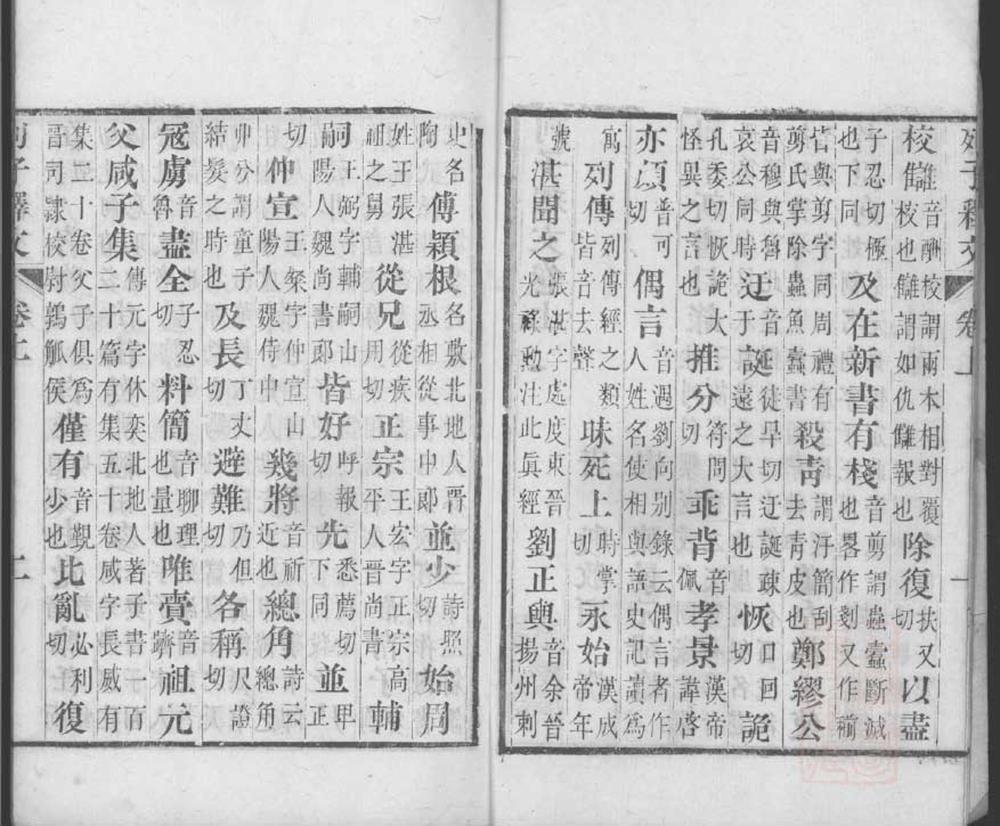 列子釋文 卷上 一
校讎音酬校謂兩木相對覆校也讎謂如仇讎報也除復扶又切以盡
子忍切極也下同及在新書有棧音剪謂蟲蠹斷滅也畧作剗又作
皆與剪字同周禮有剪氏掌除蟲魚蠹書殺青謂汙簡刮去青皮也鄭繆公
音穆與魯哀公同時迂音于誕徒旱切迂誕疎遠之大言也恢口回切詭
孔委切恢詭大怪異之言也推分符問切乖背音佩孝景漢帝諱啓
亦頗普可切偶言音遇劉向别錄云偶言者作人姓名使相與語史記讀爲
寓列傳列傳經之類皆音去聲昧死上時掌切永始漢成帝年
號湛聞之張湛字處度東晉光祿勳注此眞經劉正輿音余晉揚州刺
史名陶傅穎根名敷北地人晉丞相從事中郎並少詩照切始周
姓王張湛祖之舅從兄從疾用切正宗王宏字正宗高平人晉尚書輔
嗣王弼字輔嗣山陽人魏尚書郎皆好呼報切先悉薦切下同並甲正
切仲宣王粲字仲宣山陽人魏侍中幾將音祈近也總角詩云總角
丱兮謂童子結髮之時也及長丁丈切避難乃但切各稱尺證切
寇虜音魯盡全子忍切料簡音聊理也量也唯賫音躋祖元
父咸子集傅元字休奕北地人著子書一百二十篇有集五十卷咸字長咸有
集二十卷父子俱爲晉司隷校尉鶉觚侯僅有音覲少也比亂必利切復
列子釋文 卷上 二